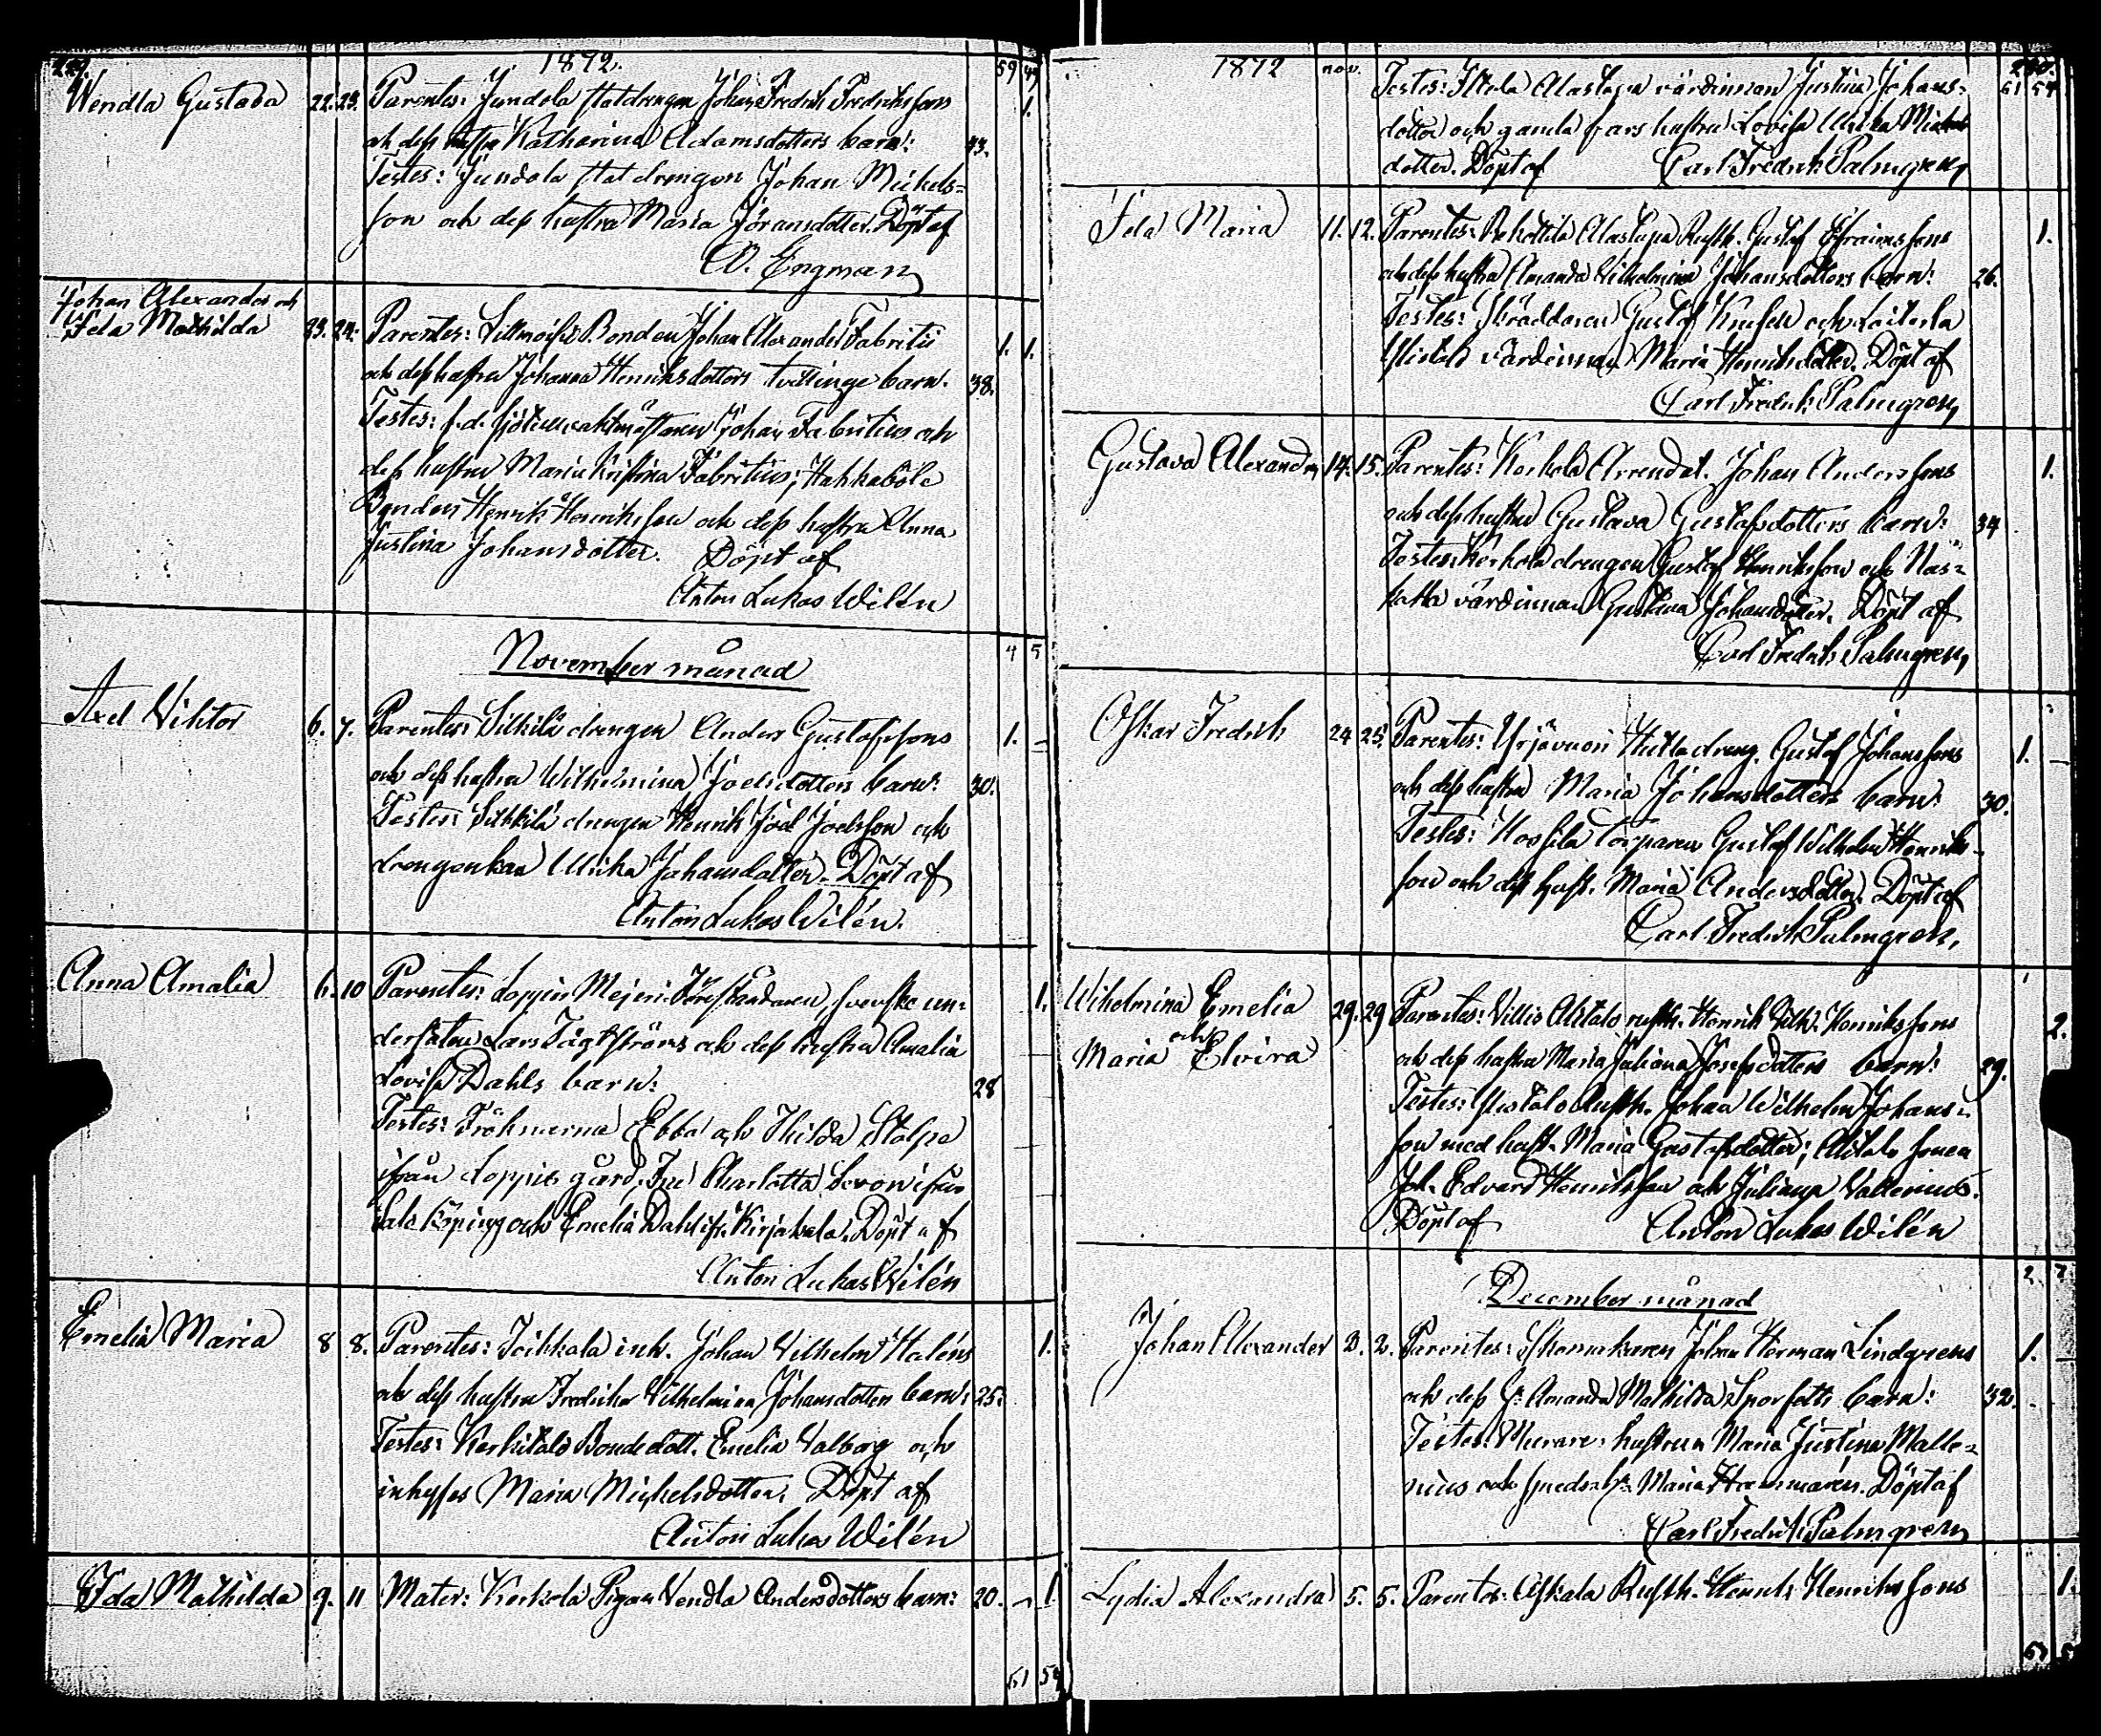 1872.
59 49
Wendla Gustava 22. 23. Parentes: Jundola statdrengen Johan Fredrik Fredrikssons 1.
och dess hustru Katharina Adamsdotters barn: 43.
Testes: Jundola statdrengen Johan Mickels-
son och dess hustru Maria Göransdotter. Döpt af
Engman
Johan Alexander och
Ida Mathilda 23. 24. Parentes: Bonden Johan Alexander Fabritii 1. 1.
och dess hustru Johanna Henriksdotters tvillinge barn. 38.
Testes: f.d. Johan Fabritius och
dess hustru Maria Kristina Fabritius; Hahkaböle
Bonden Henrik Henriksson och dess hustru Anna
Justina Johansdotter. Döpt af
Anton Lukas Wilén
November månad 4 5
Axel Viktor 6. 7. Parentes: Silkilä drengen Anders Gustafssons 1. –
och dess hustru Wilhelmina Joelsdotters barn: 30.
Testes: Silkkilä drengen Henrik Joel Joelsson och
drengenkan Ulrika Johansdotter. Döpt af
Anton Lukas Wilén.
Anna Amalia 6. 10 Parentes: Loppis Mejeri Föreståndaren, svenske un- 1.
dersåten Lars Tägtströms och dess hustru Amalia
Lovisa Dahls barn: 28
Testes: Fröknarna Ebba och Hilda Stolpe
ifrån Loppis gård, Charlotta Levon ifrån
Salo Köping och Emelia Dahl ifr. Kirjakala. Döpt af
Anton Lukas Wilén
Emelia Maria 8 8. Parentes: Toikkala inh. Johan Vilhelm Haléns 1.
och dess hustru Fredrika Vilhelmina Johansdotters barn: 25.
Testes: Kerkitalo Bondedott. Emelia Valborg och
inhyses Maria Mickelsdotter. Döpt af
Anton Lukas Wilén
Ida Mathilda 9. 11 Mater: Kerkola Pigan Vendla Andersdotters barn: 20. – 1
61 54
1872 nov. 61 54
Testes: Alastupa värdinnan Justina Johans-
dotter och gamla hustru Lovisa Ulrika Mickels
dotter. Döpt af Carl Fredrik Palmgren
Ida Maria 11. 12. Parentes: Alastupa Rusth. Gustaf Efraimssons 1.
och dess hustru Amanda Vilhelmina Johansdotters barn: 26.
Testes: Skräddaren Gustaf och
värdinnan Maria Henriksdotter. Döpt af
Carl Fredrik Palmgren
Gustava Alexandra 14. 15. Parentes: Kerkola Arrendat. Johan Anderssons 1.
och dess hustru Gustava Gustafsdotters barn: 34
Testes: Kerkola drengen Gustaf Henriksson och
värdinnan Gustava Johansdotter. Döpt af
Carl Fredrik Palmgren
Oskar Fredrik 24 25. Parentes: Yrjävuori dreng. Gustaf Johanssons 1. –
och dess hustru Maria Johansdotters barn: 30.
Testes: torparen Gustaf Wilhelm Henriks-
son och dess hust. Maria Andersdotter. Döpt af
Carl Fredrik Palmgren.
Wilhelmina Emelia
och
Maria Elvira 29. 29 Parentes: Villis Alitalo rusth. Henrik Vilh. Henrikssons 2.
och dess hustru Maria Juliana Josefsdotters barn: 29.
Testes: Ylistalo Rusth. Johan Wilhelm Johans-
son med hust. Maria Gustafsdotter; Alitalo sonen
Joh. Edvard Henriksson och Juliana Vallenius.
Döpt af Anton Lukas Wilén
2 7
December månad
Johan Alexander 2. 2. Parentes: Skomakaren Johan Herman Lindgrens 1. –
och dess h: Amanda Mathilda barn: 32.
Testes: Murare hustrun Maria Justina Malle-
nius och smeds h: Maria Döpt af
Carl Fredrik Palmgren
Lydia Alexandra 5. 5. Parentes: Rusth. Henrik Henrikssons 1.